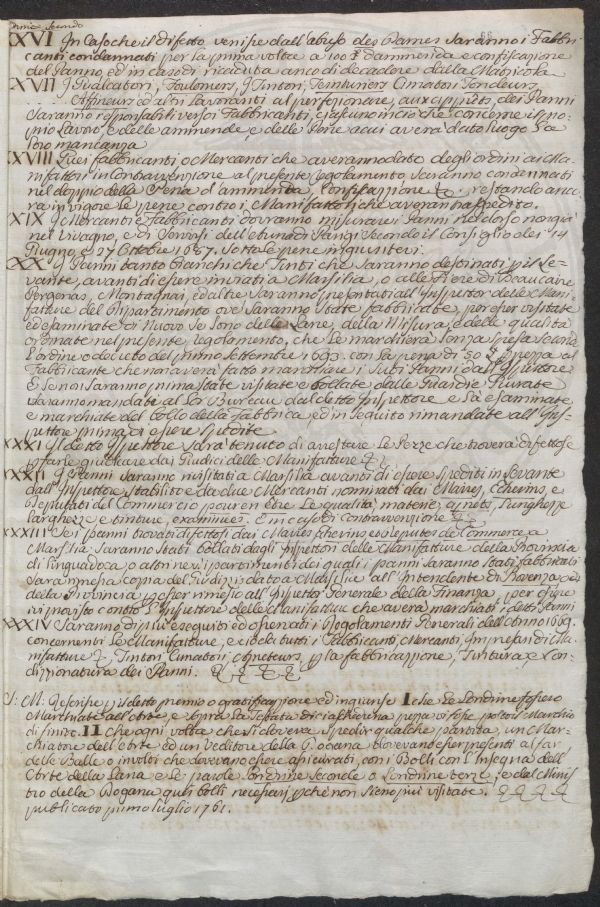 XXVI In Caso che il difetto venisse dall'abuso des Rames saranno i Fabbri-
canti condannati per la prima volta a 100 d'ammenda e confiscazione
del Panno ed in caso di ricaduta anco di decadere dalla Matricola
XXVII I Gualcatori, Foulonniers, I Tintori, Teinturiers Cimatori Tondeurs,
Affineurs ed altri Lavoranti al perfezionare, aux apprêts, dei Panni
Saranno responsabili verso i Fabbricanti, ciascuno in ciò che concerne il pro-
prio Lavoro, e delle ammende, e delle Pene a cui averà dato luogo la
loro mancanza
XXVIII Quei fabbricanti o Mercanti che averanno dato degli ordini ai Ma-
nifattori in Contravvenzione al presente regolamento saranno condennati
nel doppio della Pena d'ammenda, Confiscazione &c. restando anco-
ra in vigore le pene contro i Manifattori che averanno spedito.
XXIX I Mercanti e Fabbricanti dovranno misurare i Panni nel dorso non già
nel vivagno, e di servirsi dell'etuna di Parigi Secondo il Consiglio dei 14
Giugno e 27 Ottobre 1687. Sotto le pene ingiuntevi.
XXX I Panni tanto bianchi che Tinti che saranno destinati p il Le-
vante, avanti di essere inviati a Marsilia, o alle Fiere di Beaucaire
Pezenas, Montagnac, ed altre saranno presentati all'Inspettor delle Mani-
fatture del Dipartimento ove saranno state fabbricate, per esser visitate
ed esaminate di Nuovo se sono delle Lane, della Misura, e delle qualità
ordinate nel presente regolamento, che le marchierà senza spesa secondo
l'ordine o decreto del primo Settembre 1693. con la pena di 50 p pezza al
Fabbricante che non averà fatto marchiare i Suoi Panni dall'Ispettore
E se non saranno prima state visitate e bollate dalle Guardie Giurate
saranno mandate al lor Bureau dal detto Inspettore e là esaminate
e marchiate del bollo della Fabbrica ed in seguito rimandate all'Ins-
pettore prima di essere spedite
XXXI Il detto Ispettore sarà tenuto di arrestare le Pezze che troverà difettose
e farle giudicare dai Giudici delle Manifatture &c.
XXXII I Panni saranno rivisitati a Marsilia avanti di essere spediti in Levante
dall'Inspettore stabilito e da due Mercanti nominati dai Maires, Echevins, e
Deputati del Commercio pour en être le qualità, materie, apprets, Lunghezze
larghezze e tinture, examinees. E in caso di contravvenzione &c.
XXXIII Se i panni trovati difettosi dai Maires Echevins e deputes du Commerce a
Marsilia saranno stati bollati dagli Inspettori delle Manifatture della Provincia
di Linguadoca, o altri nei dipartimenti dei quali i panni saranno stati fabbricati
sarà rimessa copia del Giudizio dato a Marsilia all'Intendente di Provenza
della Provincia p esser rimesso all'Inspettor Generale della Finanza, per essere
ivi provisto contro l'Inspettore delle Manifatture che averà marchiati i detti Panni
XXXIV Saranno di più eseguiti ed osservati i Regolamenti Generali dell'Anno 1669.
concernenti le Manifatture, e ciò da tutti i Fabbricanti, Mercanti, Impresari di Ma-
nifatture &c, Tintori, Cimatori, p la fabbricazione, Tintura, e Con-
dizionatura dei Panni. &c &c &c
S: M: prescrisse p il detto premio o gratificazione ed ingiunse I che le Londrine fossero
Marchiate dell'Arte, e sopra la Testata di ciascheduna pezza vi fosse posto il Marchio
di finito. II che ogni volta che si doveva spedir qualche partita, un Mar-
chiatore dell'Arte ed un Veditore della Dogana dovevano esser presenti al far
delle Balle o involti che dovevano essere assicurati, con i Bolli con l'Insegna dell'
Arte della Lana e le parole Londrine Seconde o Londrine terze, e dal Minis-
tro della Dogana quei bolli necessari p chè non sieno più visitate. &c &c &c &c
pubblicato primo luglio 1761.